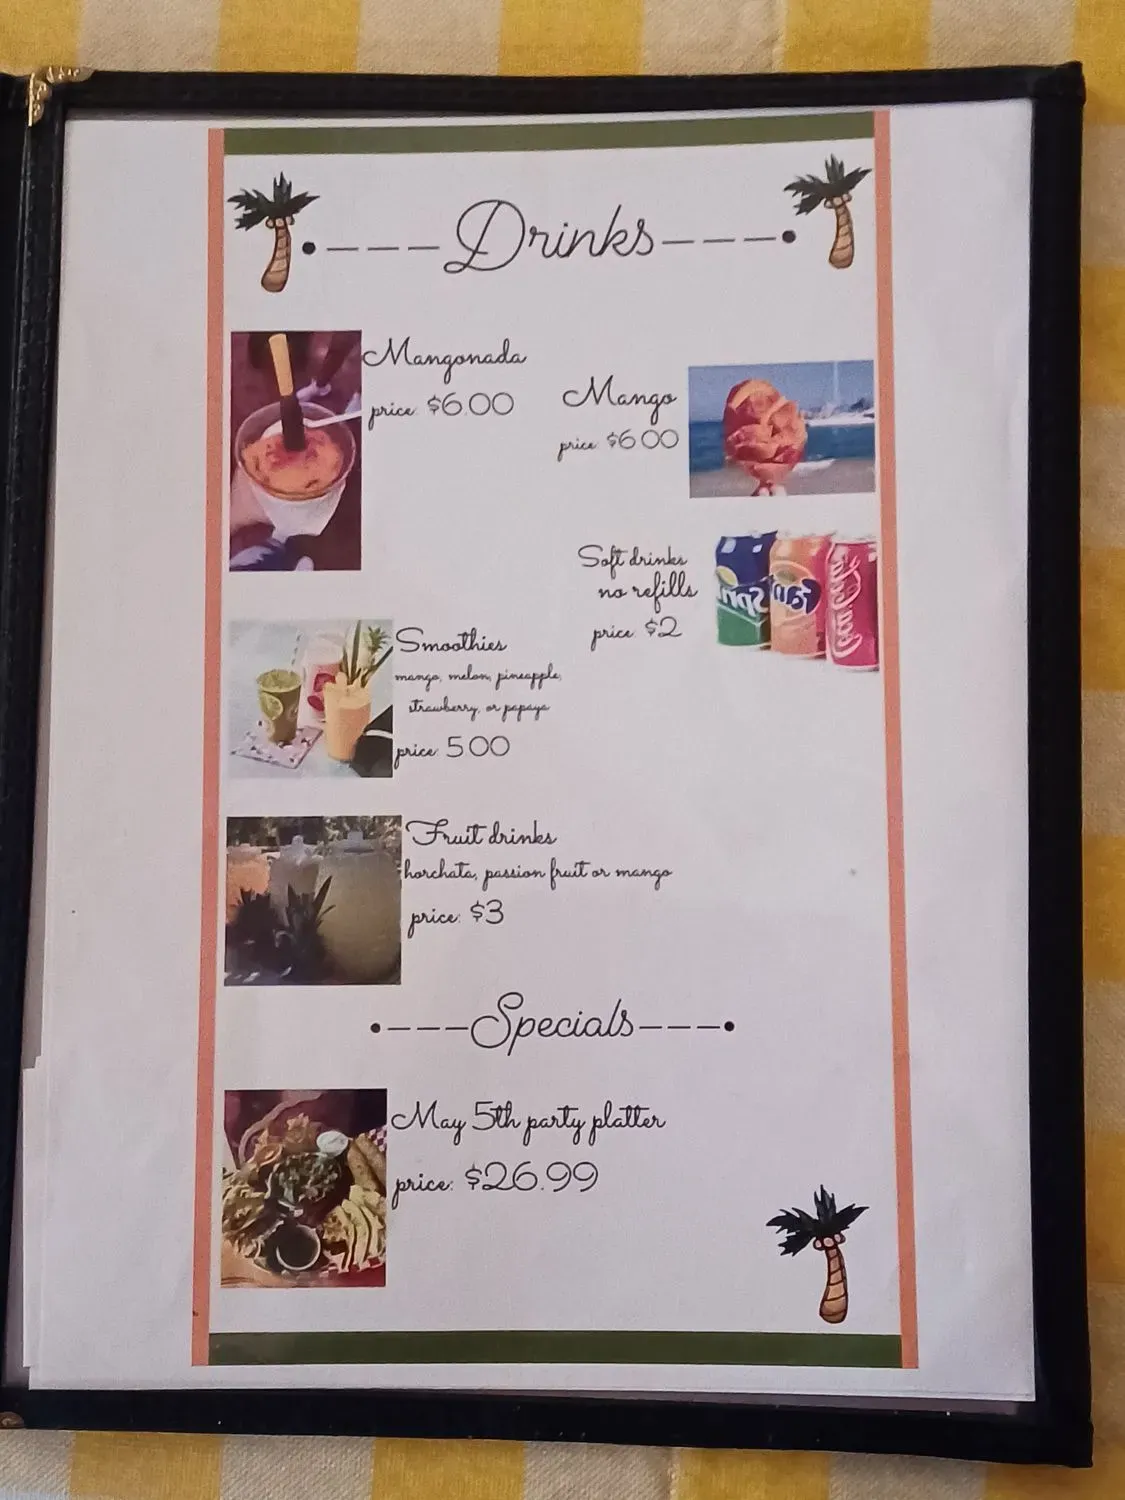 Drinks
Mangonada
price: $6.00
Mango
price: $6.00
Soft drinks
no refills
price: $2
Sprite
Fanta
Coca-Cola
Smoothies
mango, melon, pineapple,
strawberry, or papaya
price: 5.00
Fruit drinks
horchata, passion fruit or mango
price: $3
Specials
May 5th party platter
price: $26.99